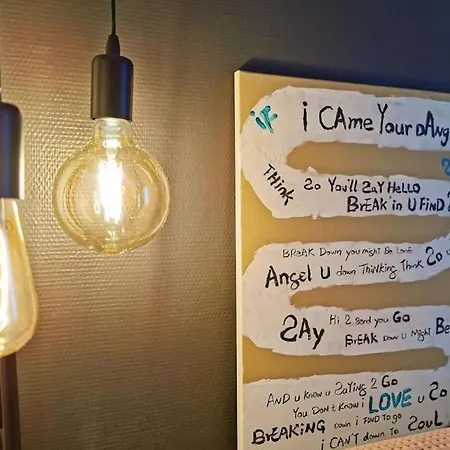 iF i CAme Your dAng
THink So You'll SaY HELLO
BrEAK in U FiND 2
BReAK Down you might Be Love
Angel U down THinking Think So u
SAy Hi 2 Sard you Go
BrEAK Down U Might Be
AND u know u SaYing 2 Go
You Don't know i LOVE u So
BREAKING Down i FinD To go
i CAN'T down To SouL